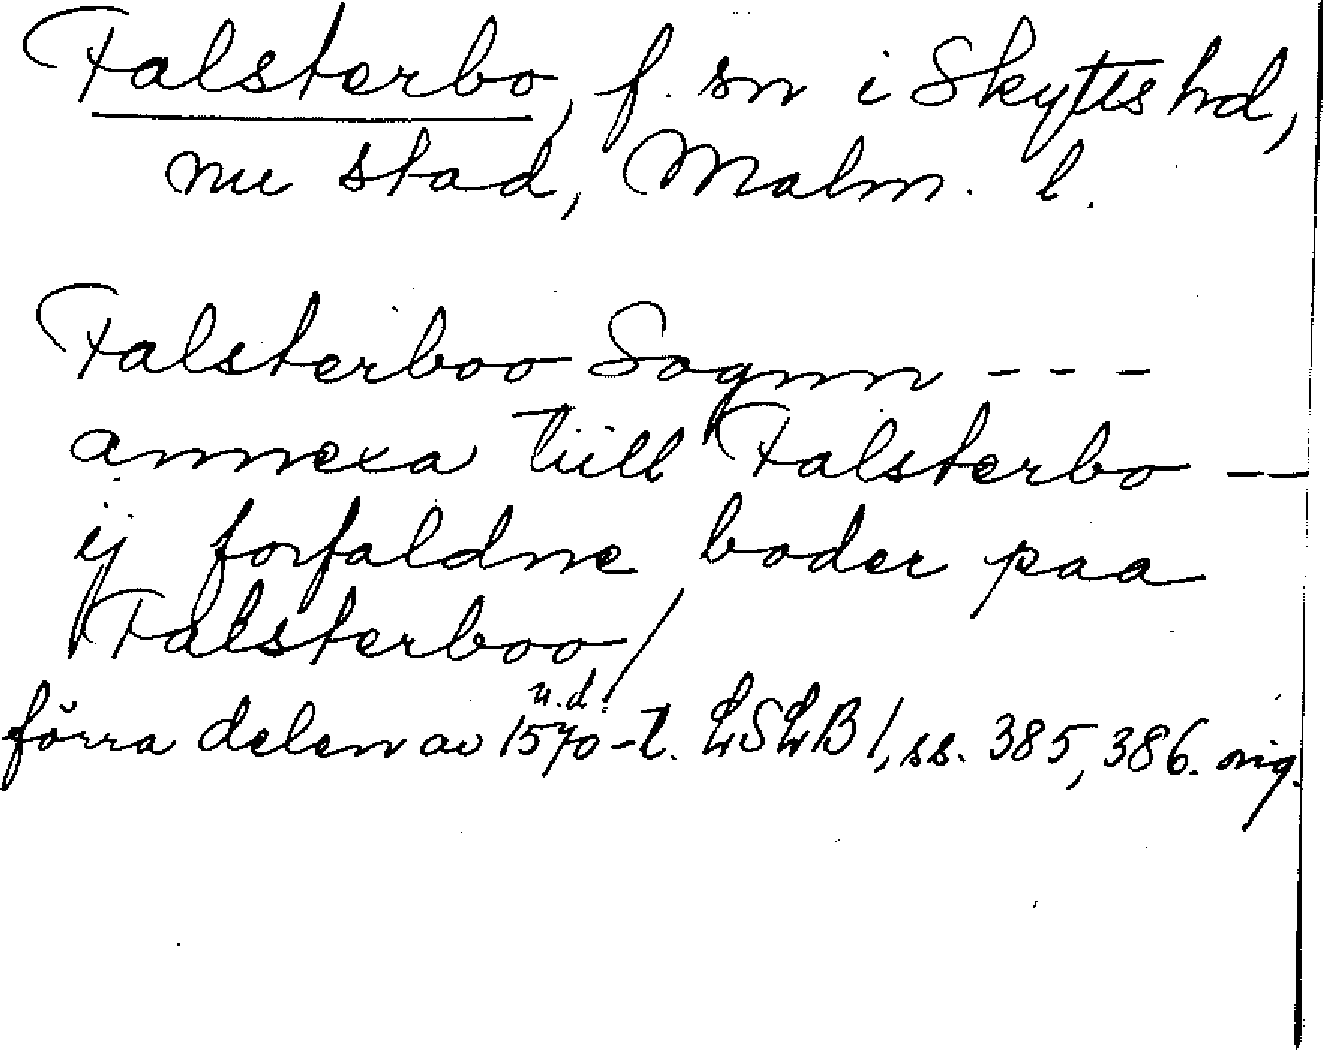 Falsterbo, f. sn i Skytts hd,
nu stad, Malm. l.
Falsterboo Sognn - - -
annexa tiill Falsterbo - -
ij forfaldne boder paa
Falsterboo /
u.d.
förra delen av 1570-t. LSLB 1, ss. 385, 386. orig.